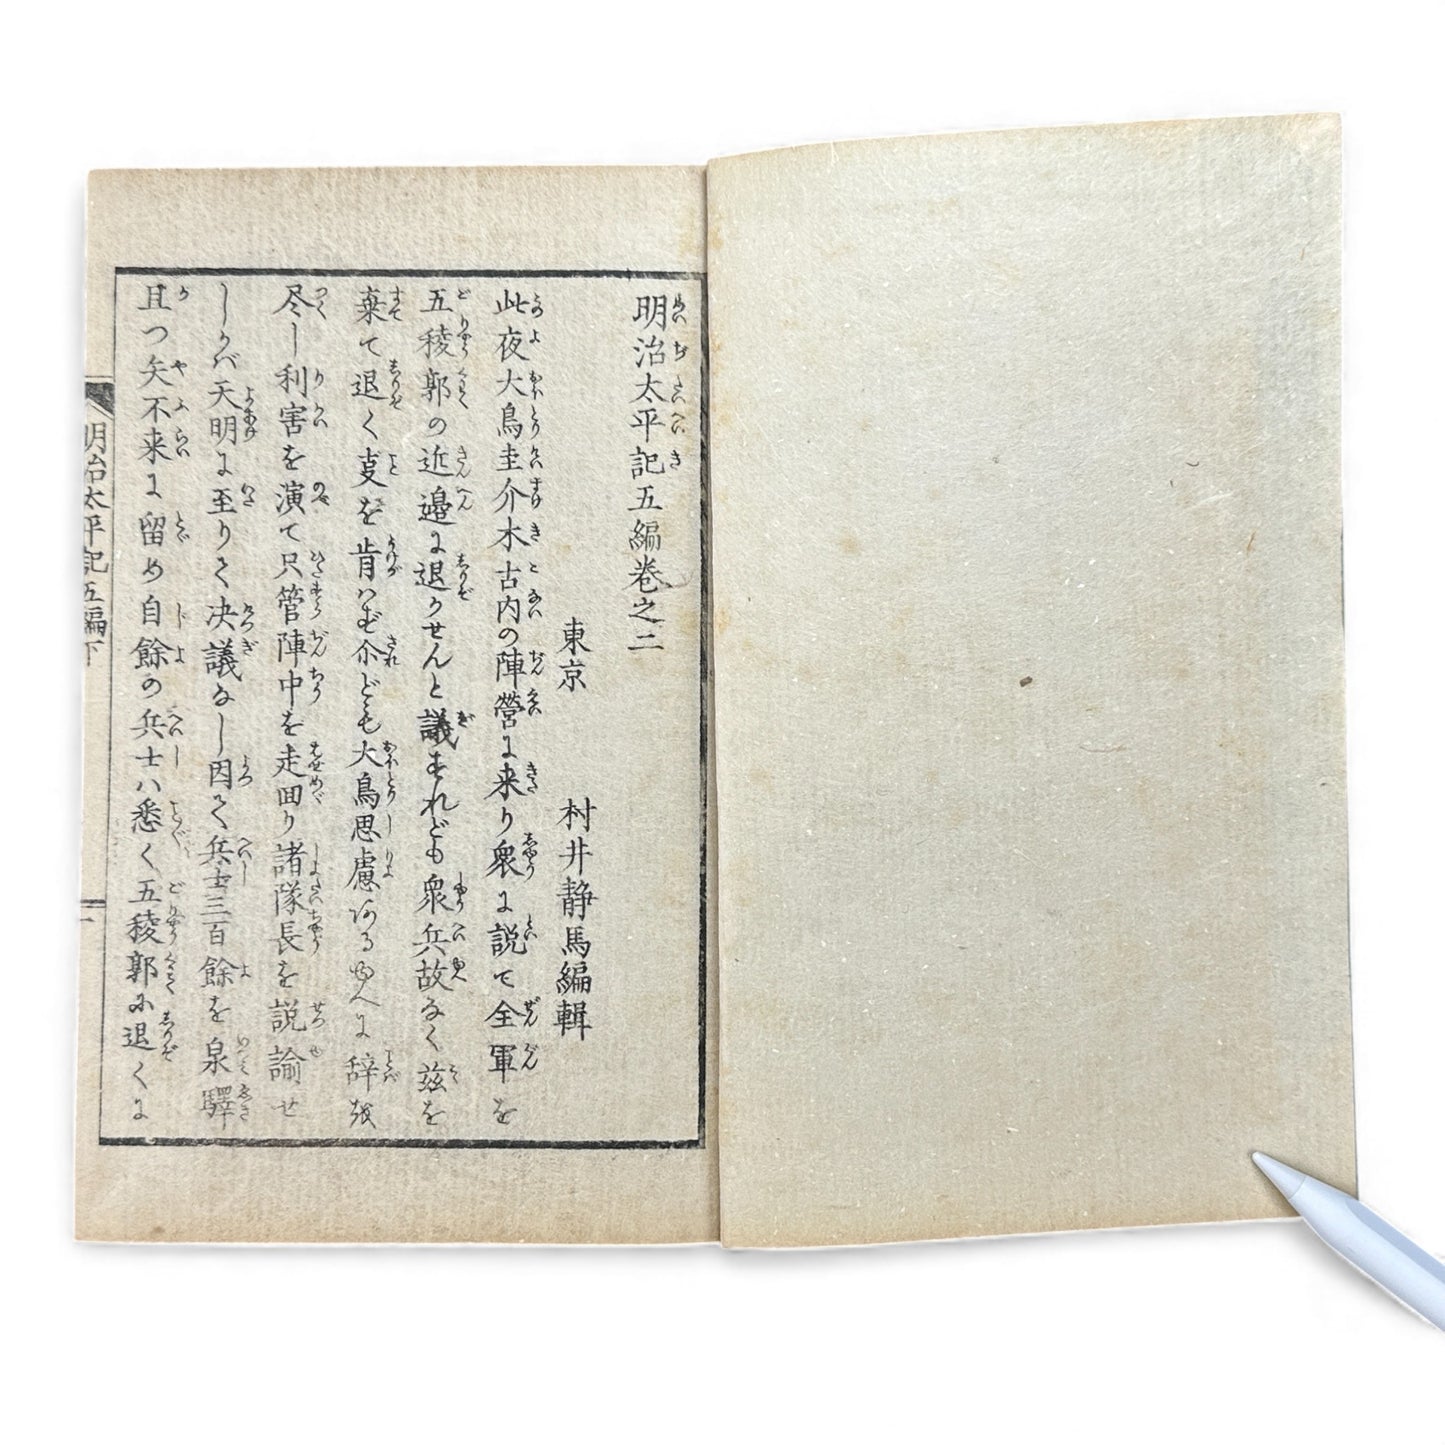 明治太平記五編巻之二
東京　村井静馬編輯
此夜大鳥圭介木古内の陣營に来り衆に説て全軍を
五稜郭の近邉に退かせんと議すれども衆兵故なく茲を
棄て退く支を肯はず尒ども大鳥思慮あるゆへに辞を
尽し利害を演て只管陣中を走回り諸隊長を説諭せ
しかバ天明に至りて决議なし因て兵士三百餘を泉驛
且つ矢不来に留め自餘の兵士ハ悉く五稜郭に退くに
明治太平記五編下
一